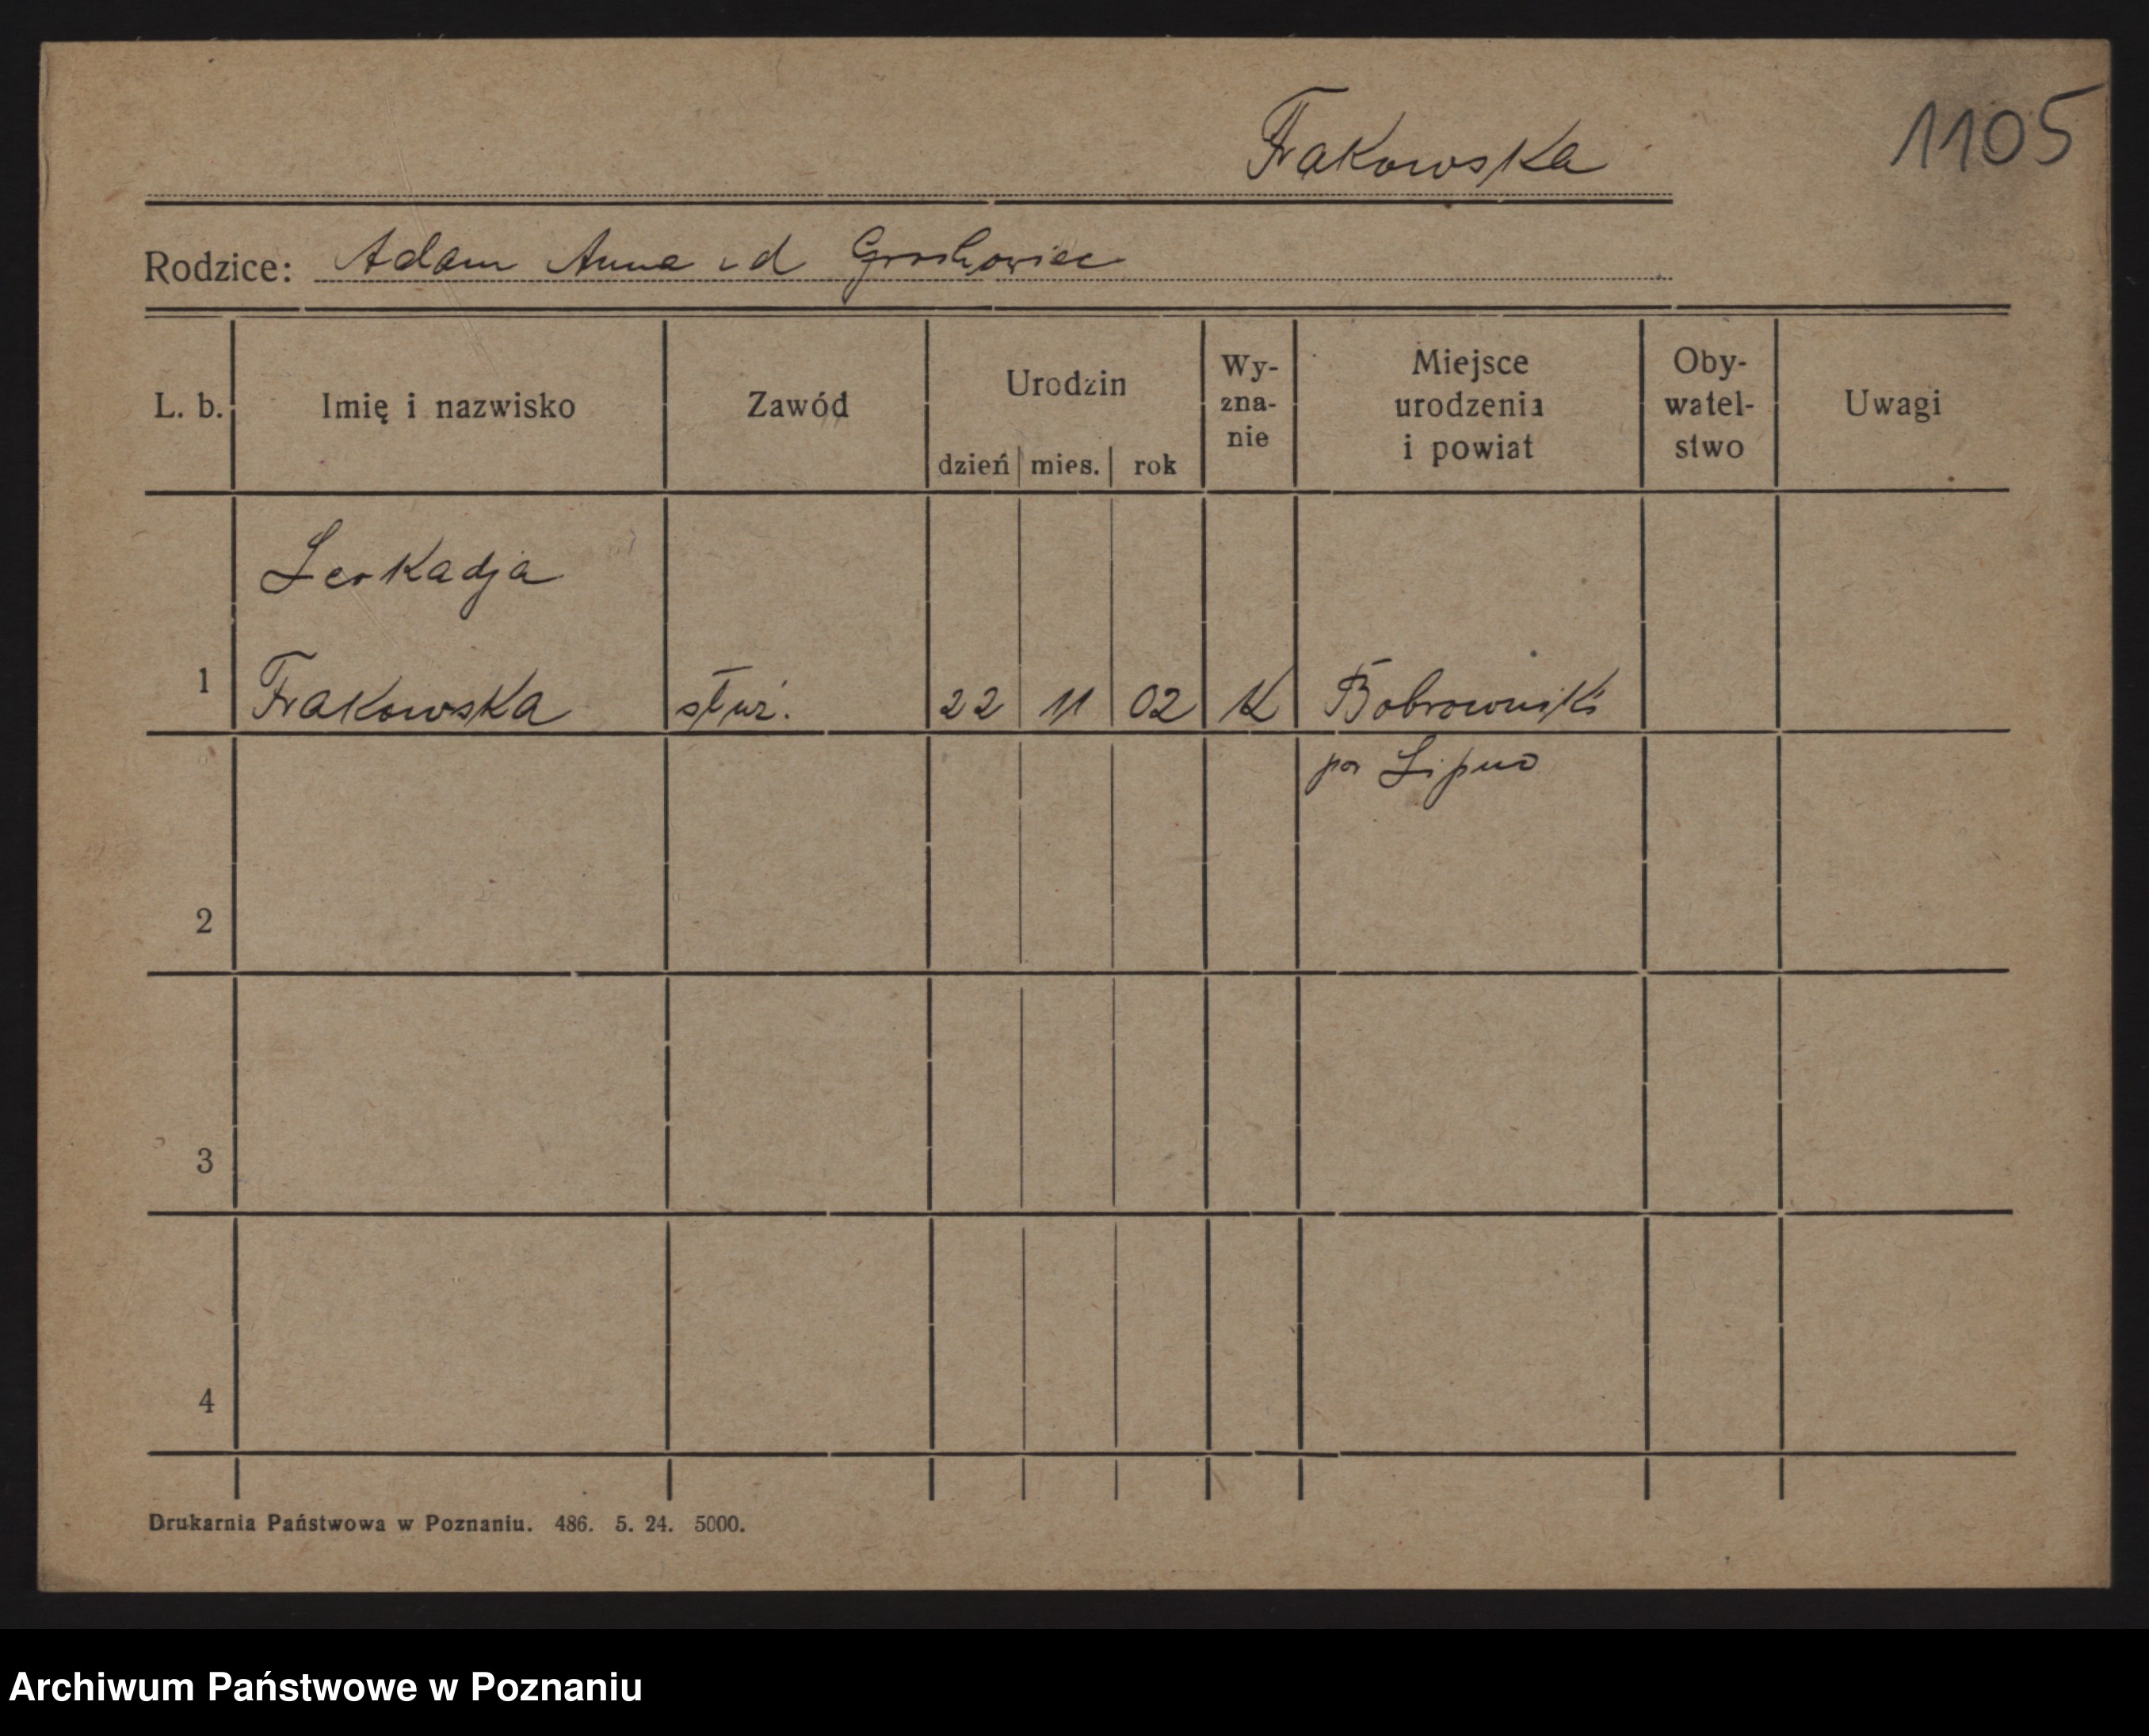 Frakowska
1105
Rodzice: Adam Anna z d Grochowiec
L. b. Imię i nazwisko Zawód Urodzin dzień mies. rok Wy-zna-nie Miejsce urodzenia i powiat Oby-watel-stwo Uwagi
Leokadja
1 Frakowska służ. 22 11 02 K Bobrowniki
po Lipno
2
3
4
Drukarnia Państwowa w Poznaniu. 486. 5. 24. 5000.
Archiwum Państwowe w Poznaniu